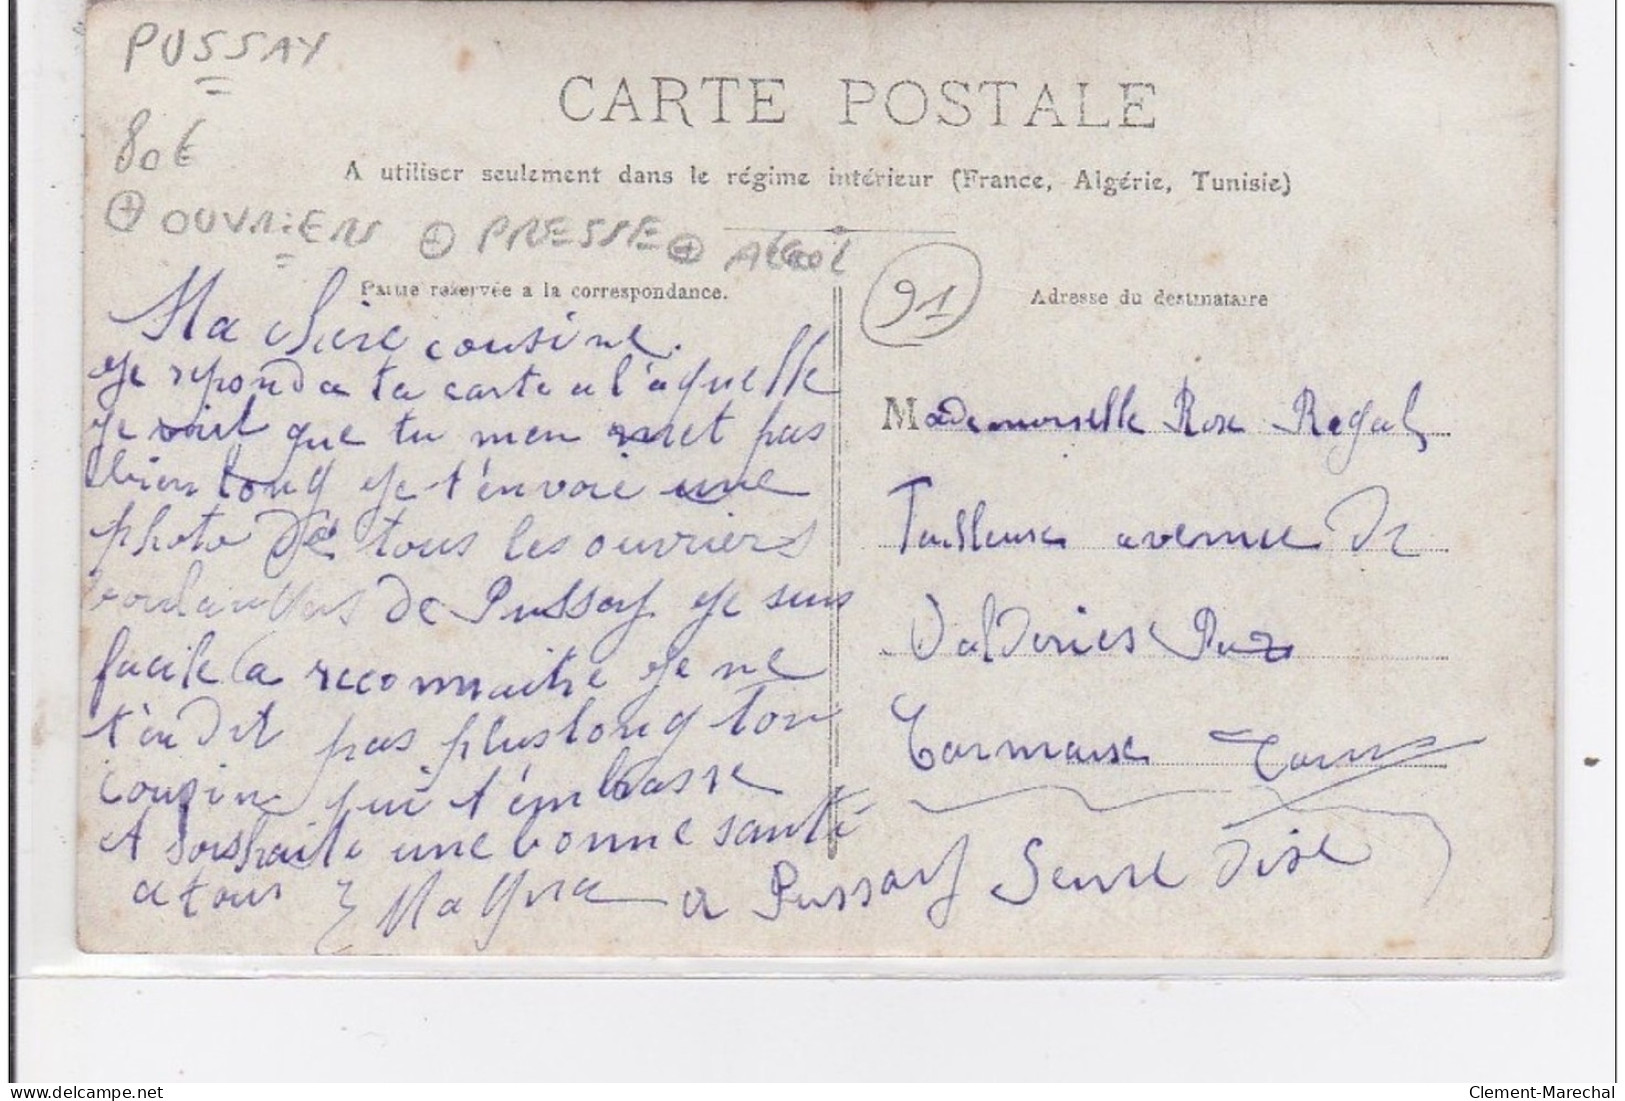 PUSSAY
80€
CARTE POSTALE
A utiliser seulement dans le régime intérieur (France, Algérie, Tunisie)
+ OUVRiERS + PRESSE + Alcool
Partie réservée a la correspondance.
91
Adresse du destinataire
Ma chère cousine.
Je repond a ta carte a l'aquelle
je voit que tu men met pas
bien long je t'envoie une
photo de tous les ouvriers
boulangers de Pussay je suis
facile a reconnaitre je ne
t'en dit pas plus long ton
cousin qui t'embrasse
et souhaite une bonne santé
a tous
a Pussay Seine Oise
Mademoiselle Rose
Tailleuse avenue de
Valderies Puz
Carmause Tarn
Clement-Marechal
https://www.delcampe.net